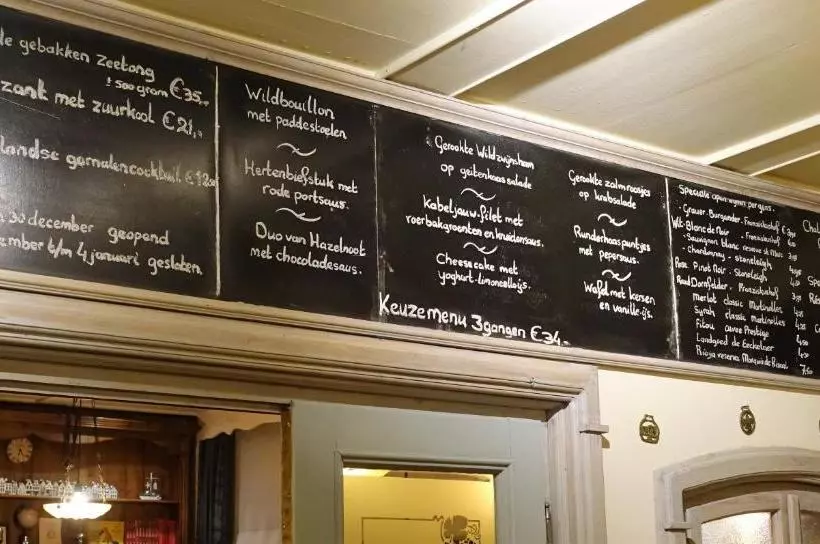 le gebakken zeetong
± 500 gram €35,-
zant met zuurkool €21,-
landse garnalencocktail
30 december geopend
ember t/m 4 januari gesloten.
Wildbouillon
met paddestoelen
Hertenbiefstuk met
rode portsaus.
Duo van Hazelnoot
met chocoladesaus.
Gerookte Wildzwijnsham
op geitenkaassalade
Kabeljauwfilet met
roerbakgroenten en kruidensaus.
Cheesecake met
yoghurt-limoncelloijs.
Gerookte zalmroosjes
op krabsalade
Runderhaaspuntjes
met pepersaus.
Wafel met kersen
en vanille-ijs.
Keuzemenu 3gangen €34,-
Speciale open wijnen per glas.
Grauer Burgunder - Franzishof
Wit - Blanc de Noir - Franzishof
Sauvignon blanc
Chardonnay - stoneleigh
Rose. Pinot Noir - Stoneleigh
Rood Dornfelder -
merlot classic Martinolles
Syrah classic martinolles
Fitou cuvee Prestige
Landgoed de Eeckeloer
Rioja reserva